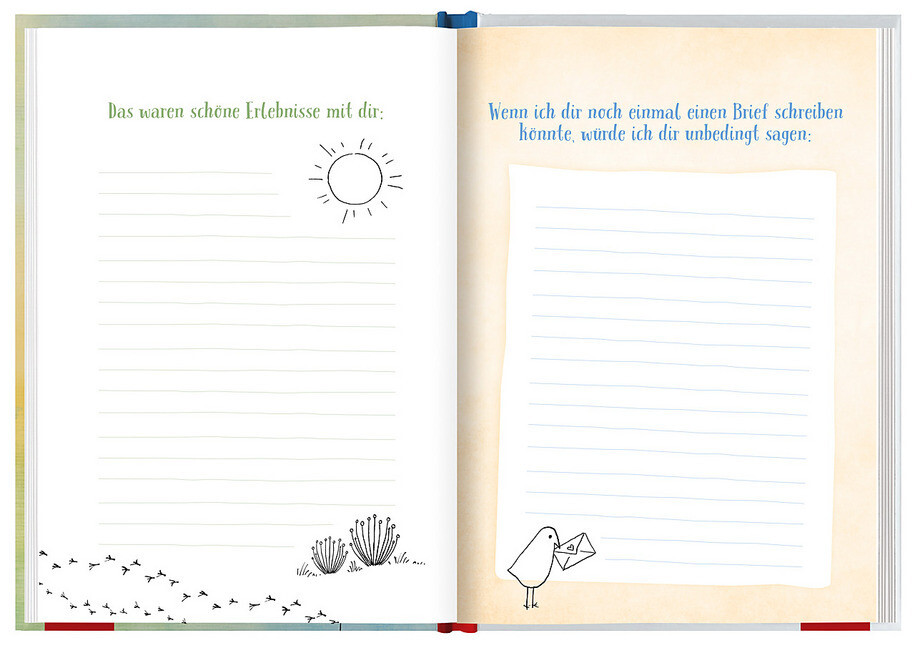 Das waren schöne Erlebnisse mit dir:
Wenn ich dir noch einmal einen Brief schreiben
könnte, würde ich dir unbedingt sagen: